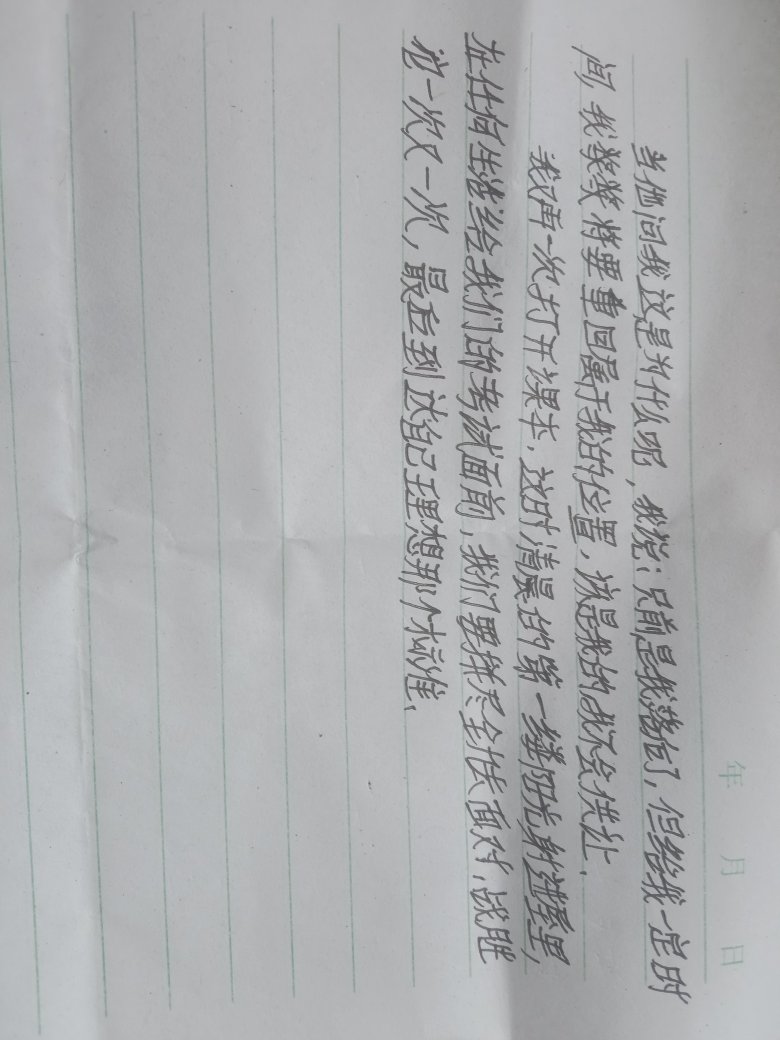 年 月 日
当他问我这是为什么呢，我说：只前是我落后了，但给我一定时
间，我浆浆将要重回属于我的位置，该是我的我不会供让、
我又再一次打开课本，这时清晨的第一缕阳光射进屋里，
在任何生活给我们的考试面前，我们要拼尽全使面对，战胜
它一次又一次，最后到达自己理想那个标准、